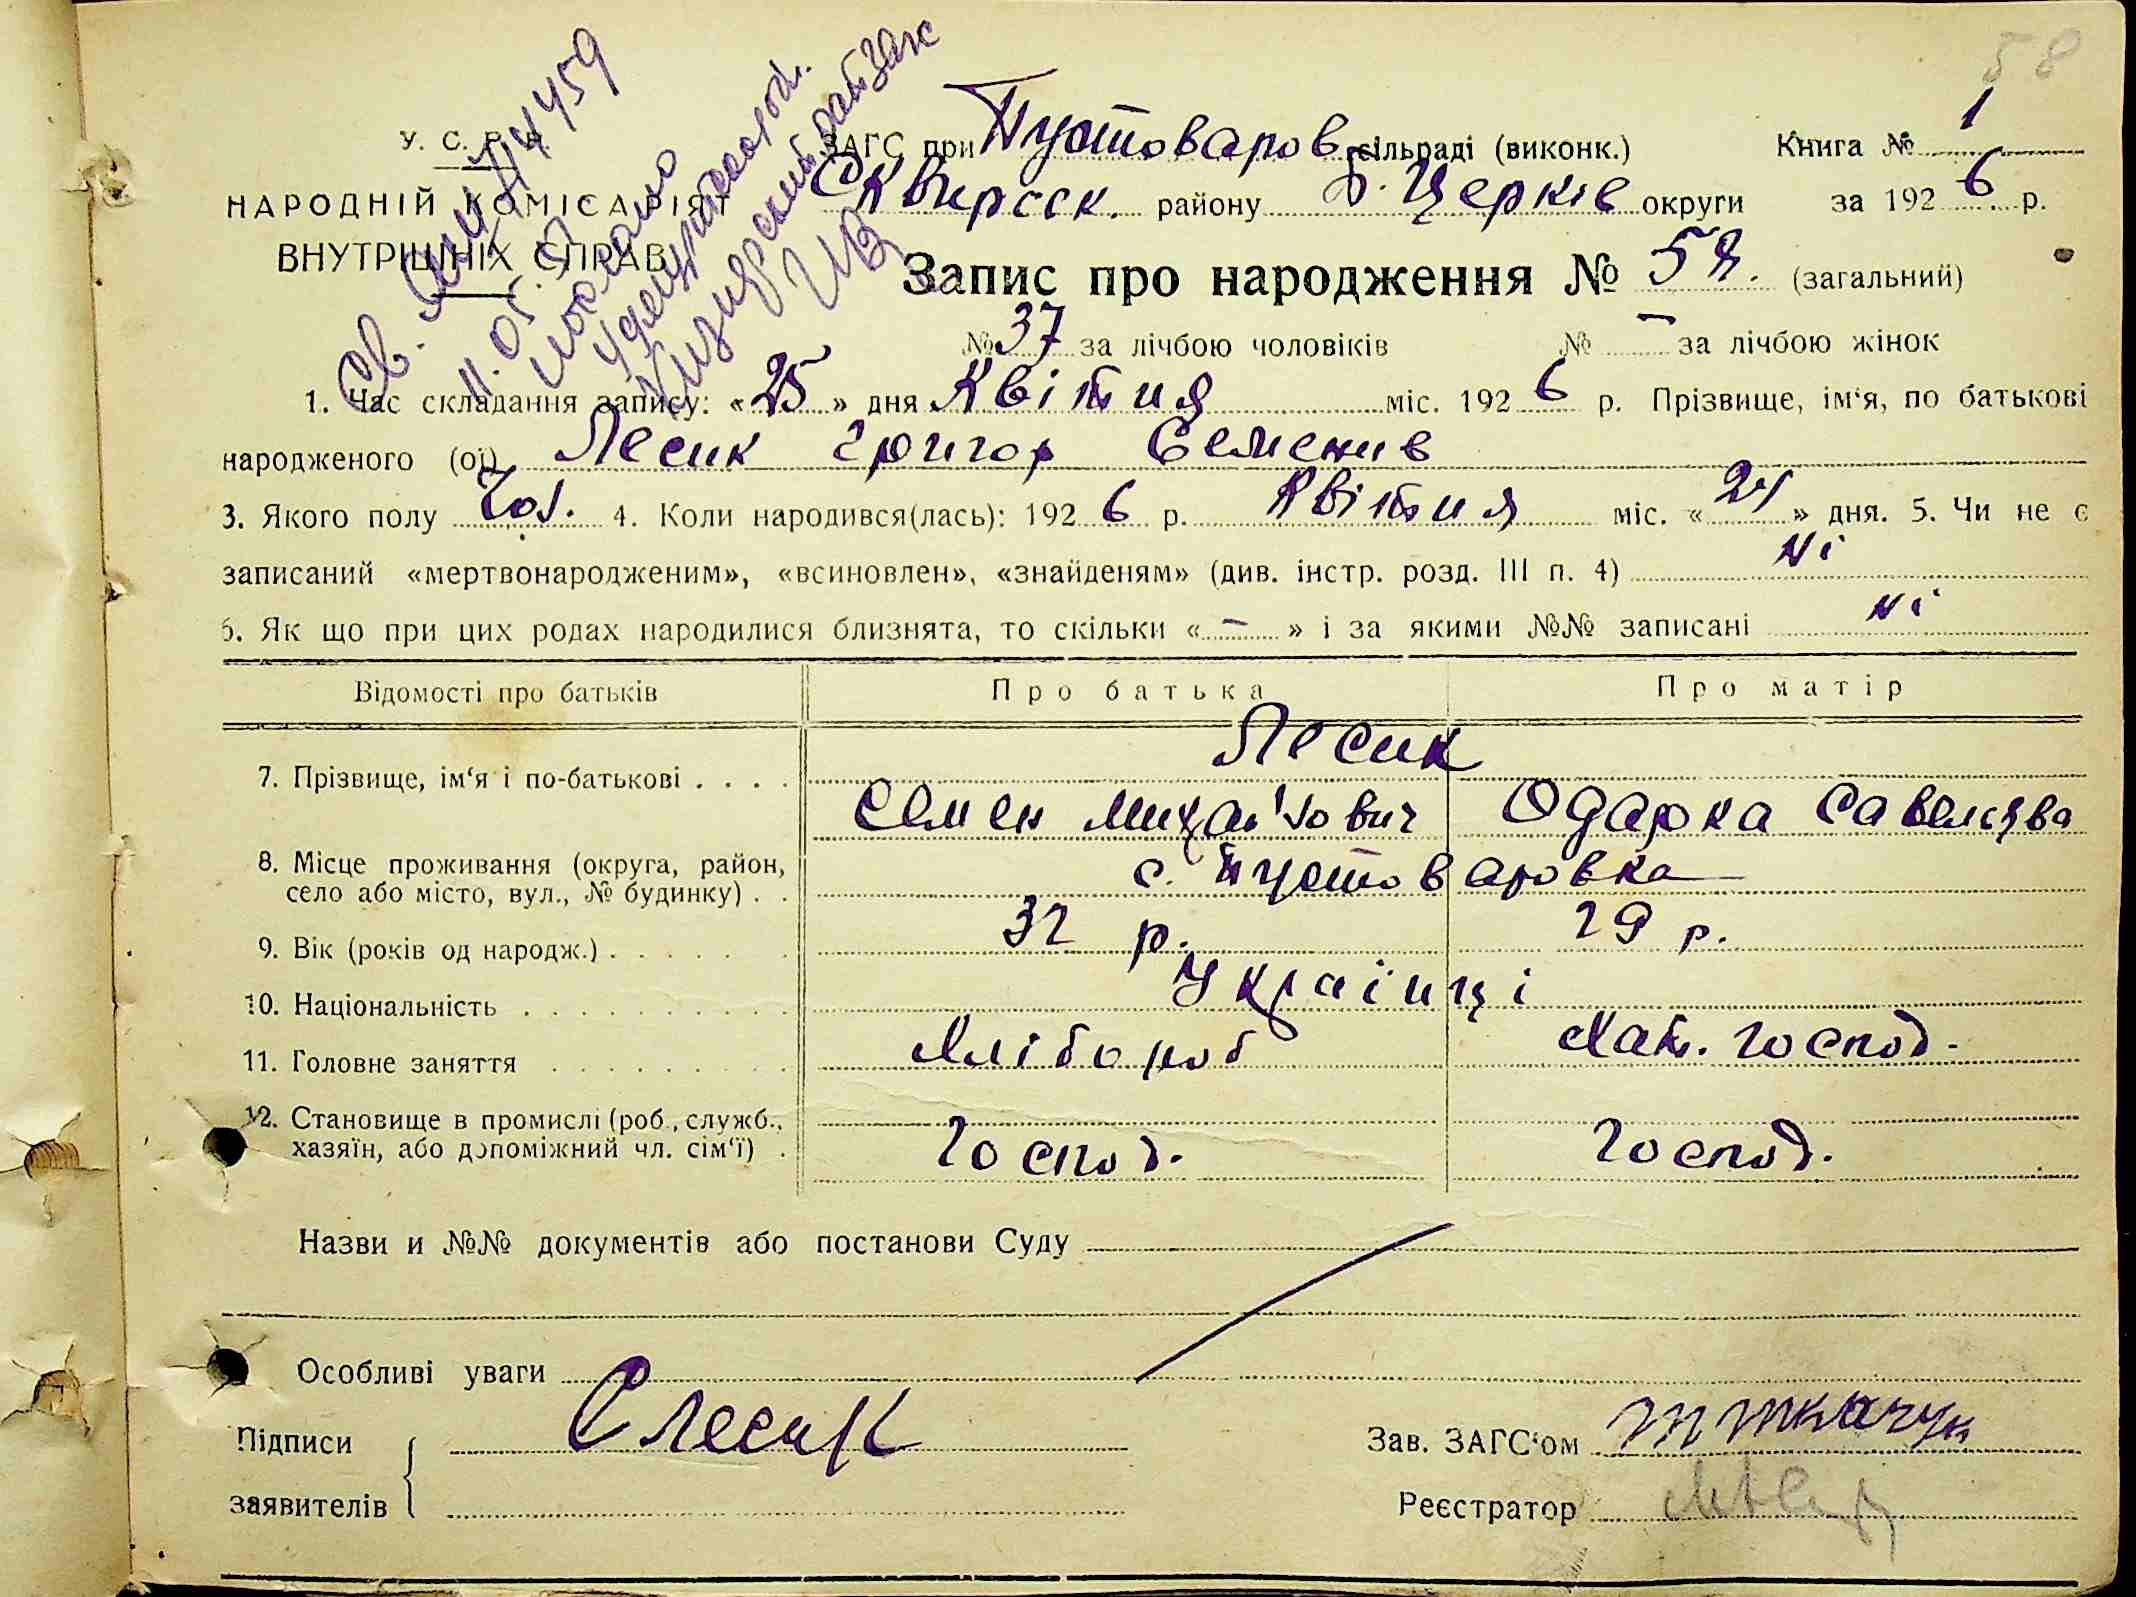 58
У. С. Р. Р.
НАРОДНІЙ КОМІСАРІЯТ
ВНУТРІШНІХ СПРАВ
ЗАГС при Пустоваров сільраді (виконк.) Книга № 1
Сквирсск. району Б. Церків округи за 1926 р.
Запис про народження № 58. (загальний)
№ 37 за лічбою чоловіків № – за лічбою жінок
1. Час складання запису: «25» дня Квітня міс. 1926 р. Прізвище, ім‘я, по батькові
народженого (ої) Лесик Григор Семенив
3. Якого полу Чол. 4. Коли народився(лась): 1926 р. Квітня міс. «24» дня. 5. Чи не є
записаний «мертвонародженим», «всиновлен», «знайденям» (див. інстр. розд. III п. 4) Ні
6. Як що при цих родах народилися близнята, то скільки «–» і за якими №№ записані ні
Відомості про батьків Про батька Про матір
7. Прізвище, ім‘я і по-батькові . . . . Лесик
Семен Михайлович Одарка Савелієва
8. Місце проживання (округа, район,
село або місто, вул., № будинку) . . с. Пустоваровка
9. Вік (років од народж.) . . . . . 32 р. 29 р.
10. Національність . . . . . . . . . . Українці
11. Головне заняття . . . . . . . . . Хлібороб Хат. господ.
12. Становище в промислі (роб., служб.,
хазяїн, або допоміжний чл. сім‘ї) . Господ. Господ.
Назви и №№ документів або постанови Суду
Особливі уваги
Підписи С Лесик Зав. ЗАГС‘ом Т Ткачук
заявителів Реєстратор